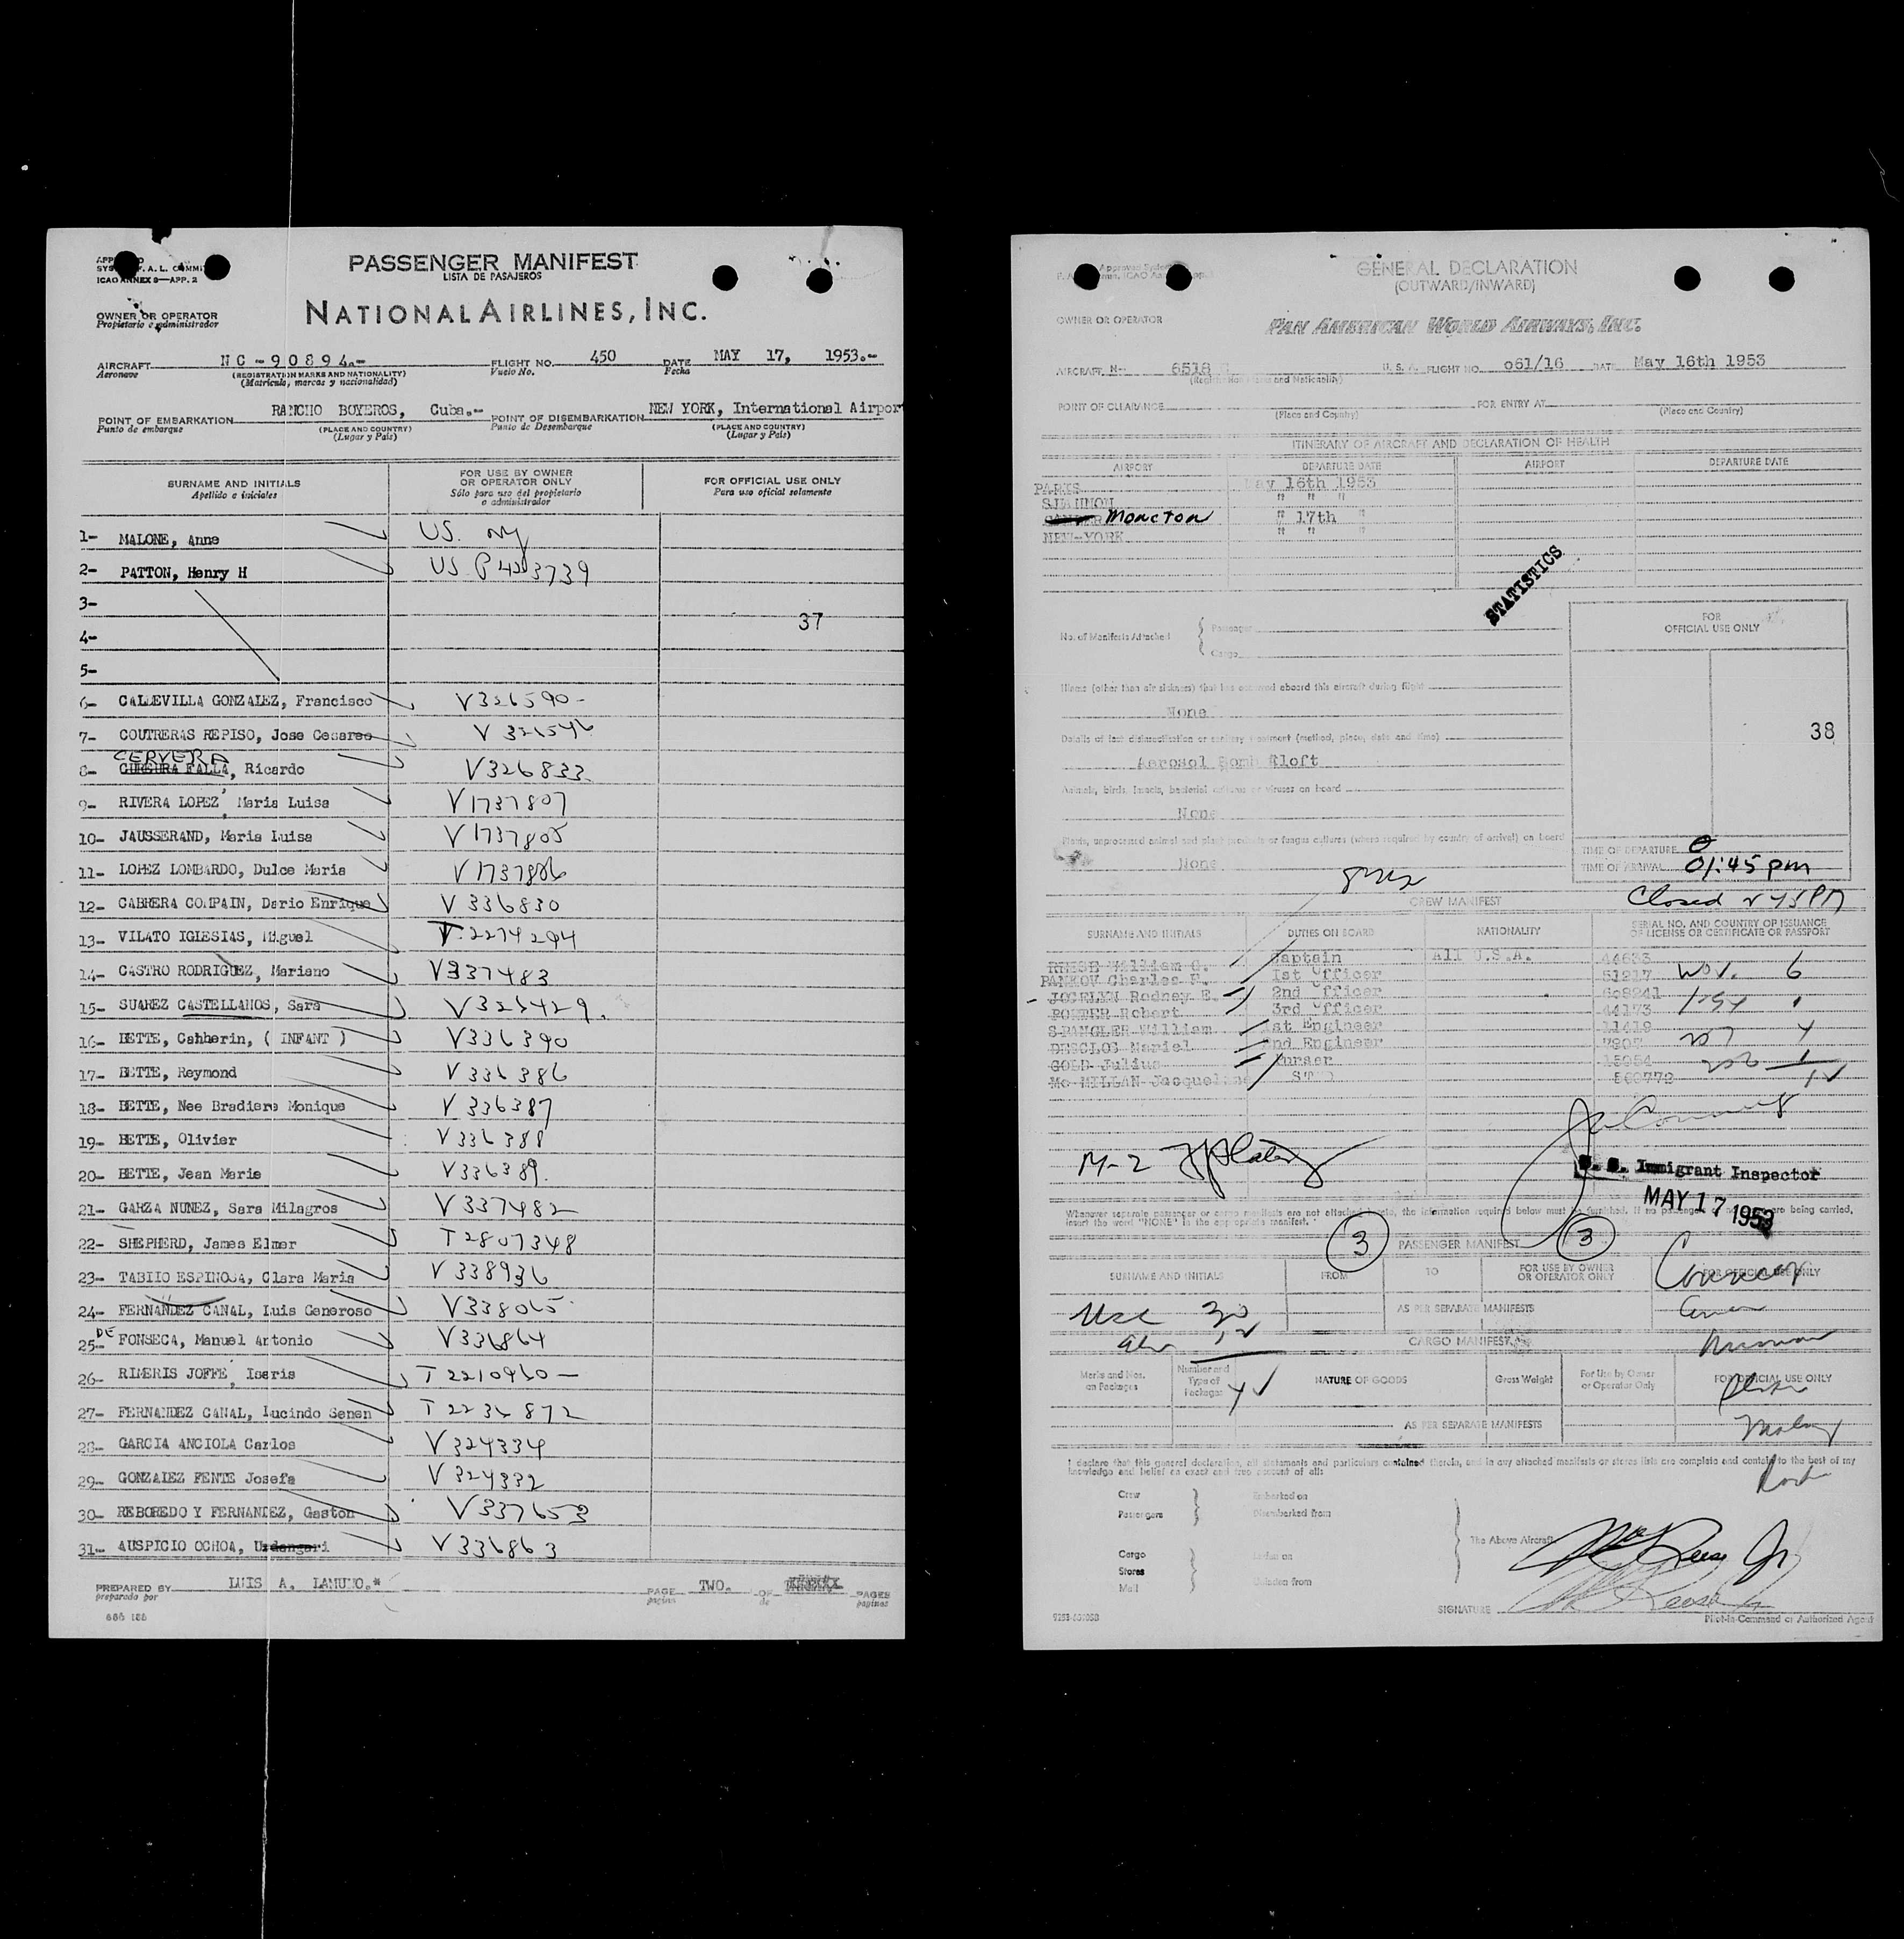 PASSENGER MANIFEST
LISTA DE PASAJEROS
ICAO ANNEX 9—APP. 2
NATIONAL AIRLINES, INC.
OWNER OR OPERATOR
Propietario o administrador
AIRCRAFT NC-90894.- FLIGHT NO. 450 DATE MAY 17, 1953.-
Aeronave (REGISTRATION MARKS AND NATIONALITY) Vuelo No. Fecha
(Matricula, marcas y nacionalidad)
POINT OF EMBARKATION RANCHO BOYEROS, Cuba.- POINT OF DISEMBARKATION NEW YORK, International Airpor
Punto de embarque (PLACE AND COUNTRY) Punto de Desembarque (PLACE AND COUNTRY)
(Lugar y País) (Lugar y País)
SURNAME AND INITIALS FOR USE BY OWNER OR OPERATOR ONLY FOR OFFICIAL USE ONLY
Apellido e iniciales Sólo para uso del propietario o administrador Para uso oficial solamente
1- MALONE, Anne US. ny
2- PATTON, Henry H US P
3-
37
4-
5-
6- CALLEVILLA GONZALEZ, Francisco V326590-
7- COUTRERAS REPISO, Jose Cesareo V 326546
CERVERA
8- FALLA, Ricardo V326833
9- RIVERA LOPEZ, Maria Luisa V1737807
10- JAUSSERAND, Maria Luisa V1737805
11- LOPEZ LOMBARDO, Dulce Maria V1737806
12- CABRERA COMPAIN, Dario Enrique V 336830
13- VILATO IGLESIAS, Miguel T.2274294
14- CASTRO RODRIGUEZ, Mariano V337483
15- SUAREZ CASTELLANOS, Sara V326429.
16- BETTE, Cahherin, ( INFANT ) V336390
17- BETTE, Reymond V 336386
18- BETTE, Nee Bradiere Monique V 336387
19- BETTE, Olivier V336388
20- BETTE, Jean Marie V336389.
21- GARZA NUNEZ, Sara Milagros V337482
22- SHEPHERD, James Elmer T2807348
23- TABIIO ESPINOSA, Clara Maria V 338936
24- FERNANDEZ CANAL, Luis Generoso V338065
25- DE FONSECA, Manuel Artonio V336864
26- RIMERIS JOFFE, Iseris T 2210960-
27- FERNANDEZ CANAL, Lucindo Senen T 2236872
28- GARCIA ANCIOLA Carlos V324334
29- GONZALEZ FENTE Josefa V 324332
30- REBOREDO Y FERNANDEZ, Gaston V337653
31- AUSPICIO OCHOA, Urdangari V336863
PREPARED BY LUIS A. LAMUNO.* PAGE TWO. OF PAGES
preparado por pagina de paginas
GENERAL DECLARATION
(OUTWARD/INWARD)
OWNER OR OPERATOR PAN AMERICAN WORLD AIRWAYS, INC.
AIRCRAFT N- 6518 U. S. A. FLIGHT NO. 061/16 DATE May 16th 1953
(Registration Marks and Nationality)
POINT OF CLEARANCE FOR ENTRY AT
(Place and Country) (Place and Country)
ITINERARY OF AIRCRAFT AND DECLARATION OF HEALTH
AIRPORT DEPARTURE DATE AIRPORT DEPARTURE DATE
PARIS May 16th 1953
SHANNON " " "
Moncton " 17th "
NEW-YORK " " "
STATISTICS
FOR OFFICIAL USE ONLY
No. of Manifests Attached Passenger
Cargo
Illness (other than air sickness) that has occurred aboard this aircraft during flight
None
38
Details of last disinsectization or sanitary treatment (method, place, date and time)
Aerosol Bomb Aloft
Animals, birds, insects, bacterial cultures or viruses on board
None
Plants, unprocessed animal and plant products or fungus cultures (where required by country of arrival) on board
None
TIME OF DEPARTURE
TIME OF ARRIVAL 01:45 pm
Closed 245 PM
CREW MANIFEST
SURNAME AND INITIALS DUTIES ON BOARD NATIONALITY SERIAL NO. AND COUNTRY OF ISSUANCE OF LICENSE OR CERTIFICATE OR PASSPORT
REESE William G. Captain All U.S.A. 44633
PANKOV Charles F. 1st Officer 51217
JOCELYN Rodney E. 2nd Officer
PORTER Robert 3rd Officer 44173
SPANGLER William 1st Engineer 11419
DESCLOS Mariel 2nd Engineer
GOLD Julius Purser 15054
Mc MILLAN Jacqueline 560772
M-2
U. S. Immigrant Inspector
MAY 17 1953
Whenever separate passenger or cargo manifests are not attached hereto, the information required below must be furnished. If no passengers or no cargo are being carried, insert the word "NONE" in the appropriate manifest.
3 PASSENGER MANIFEST 3
SURNAME AND INITIALS FROM TO FOR USE BY OWNER OR OPERATOR ONLY FOR OFFICIAL USE ONLY
AS PER SEPARATE MANIFESTS
CARGO MANIFEST
Marks and Nos. on Packages Number and Type of Packages NATURE OF GOODS Gross Weight For Use by Owner or Operator Only FOR OFFICIAL USE ONLY
AS PER SEPARATE MANIFESTS
I declare that this general declaration, all statements and particulars contained therein, and in any attached manifests or stores lists are complete and contain to the best of my knowledge and belief an exact and true account of all:
Crew Embarked on
Passengers Disembarked from
The Above Aircraft
Cargo Laden on
Stores
Mail Unladen from
SIGNATURE
Pilot-in-Command or Authorized Agent